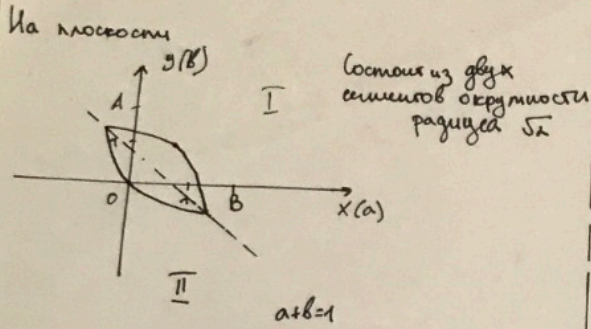 На плоскости
y(в)
A
I
Состоит из двух
сегментов окружности
радиуса √2
O
B
x(a)
II
a+в=1